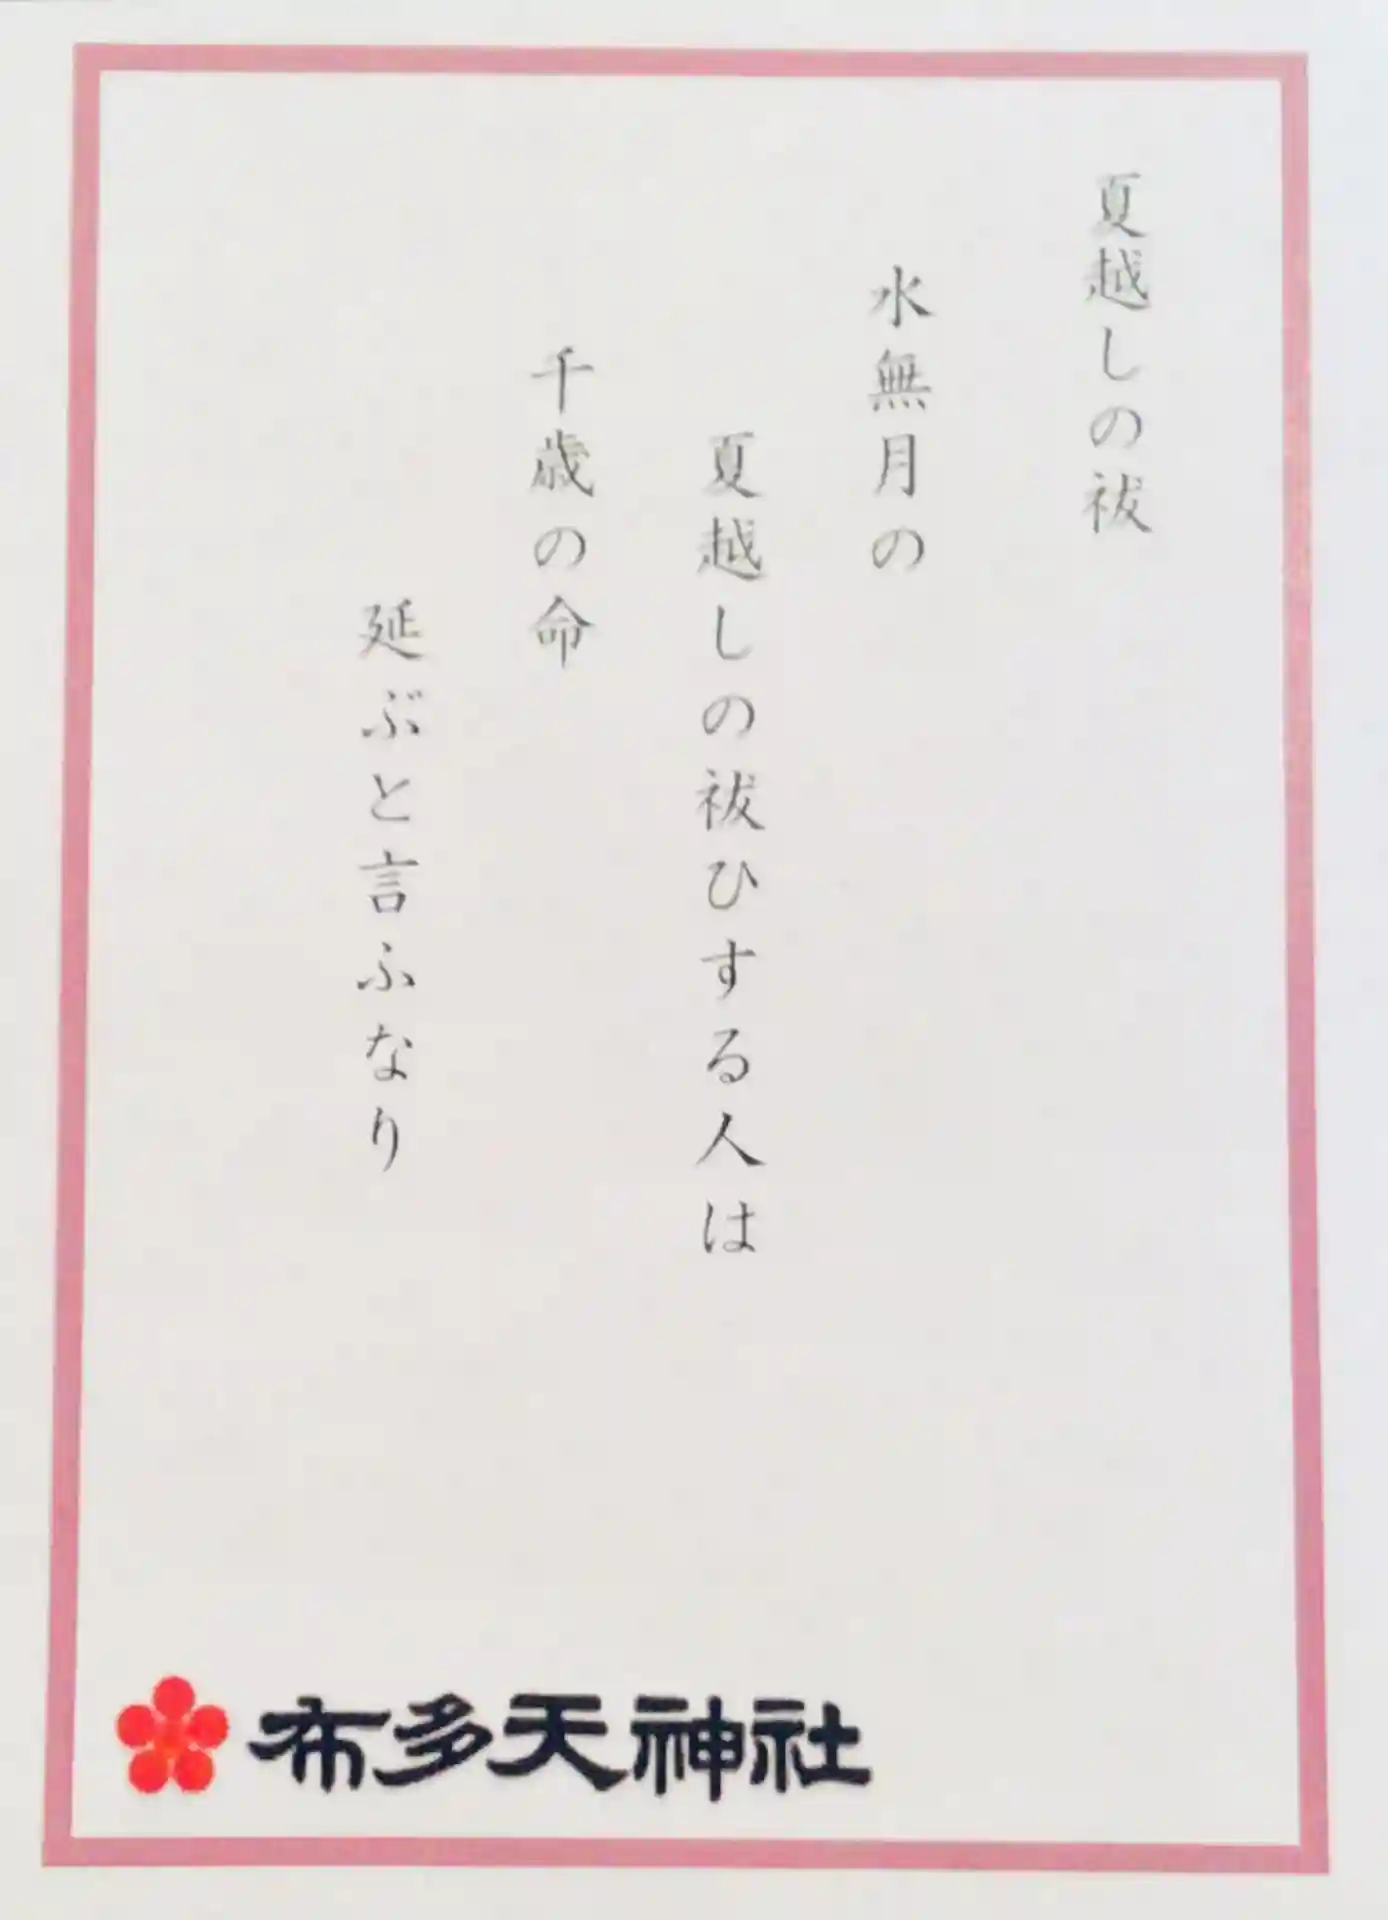 夏越しの祓
水無月の
夏越しの祓ひする人は
千歳の命
延ぶと言ふなり
布多天神社